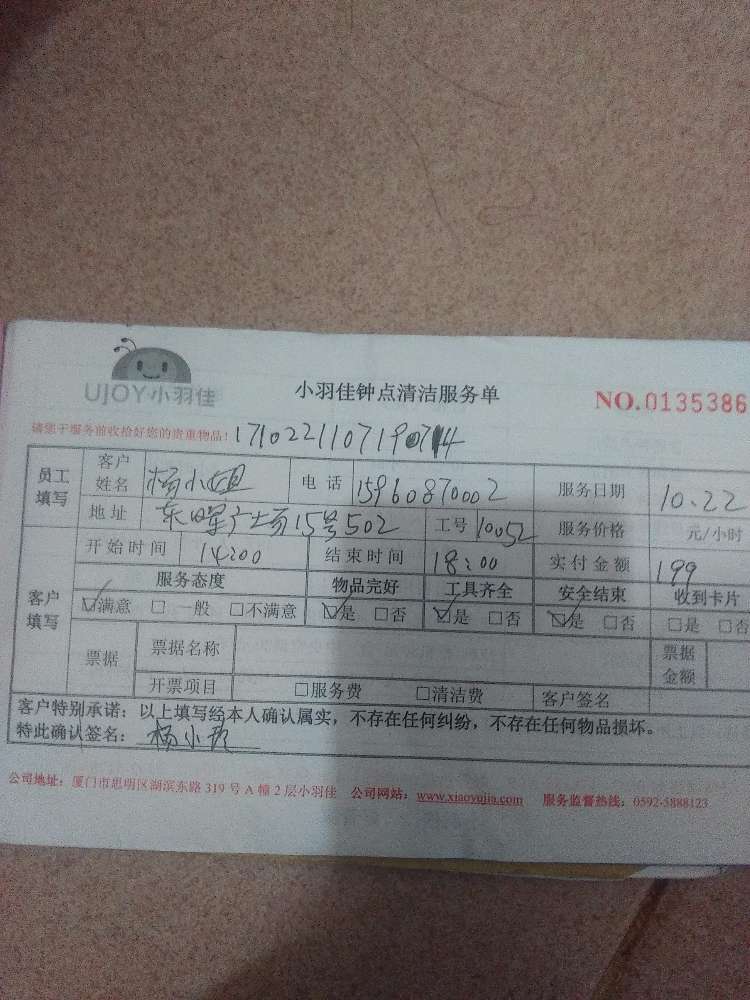 UJOY小羽佳 小羽佳钟点清洁服务单 NO.0135386
请您于服务前收拾好您的贵重物品！
员工填写 客户姓名 杨小姐 电话 15960870002 服务日期 10.22
地址 东晖广场15号502 工号 10052 服务价格 元/小时
开始时间 14:00 结束时间 18:00 实付金额 199
客户填写 服务态度 物品完好 工具齐全 安全结束 收到卡片
☑满意 □一般 □不满意 ☑是 □否 ☑是 □否 ☑是 □否 □是 □否
票据 票据名称 票据金额
开票项目 □服务费 □清洁费 客户签名
客户特别承诺：以上填写经本人确认属实，不存在任何纠纷，不存在任何物品损坏。
特此确认签名：杨小
公司地址：厦门市思明区湖滨东路 319 号 A 幢 2 层小羽佳 公司网站：www.xiaoyujia.com 服务监督热线：0592-5888123